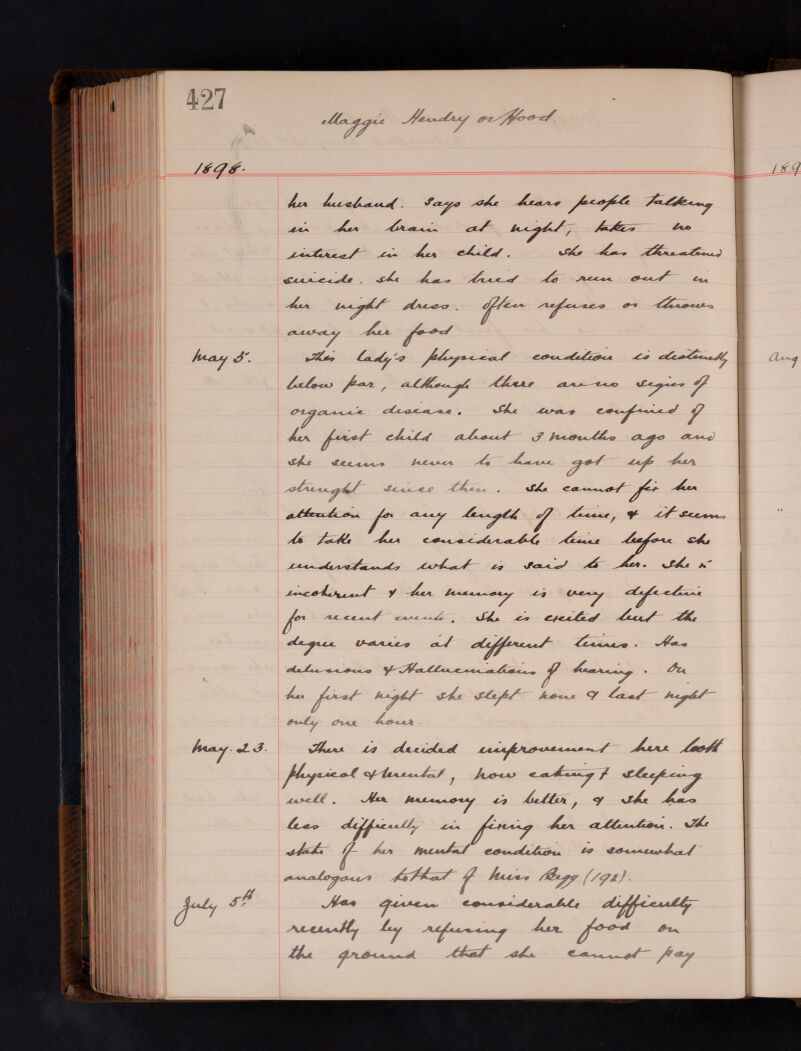 427
Maggie Hendry or Hood
1898.
her husband. Says she hears people talking
in her brain at night, takes no
interest in her child. She has threatened
suicide. She has tried to run out in
her night dress. Often refuses or throws
away her food
May 5. This lady's physical condition is distinctly
below par, although there are no signs of
organic disease. She was confined of
her first child about 3 months ago and
she seems never to have got up her
strenght since then. She cannot fix her
attention for any length of time, & it seems
to take her considerable time before she
understands what is said to her. She is
incoherent & her memory is very defective
for recent events. She is excited but the
degree varies at different times. Has
delusions & Hallucinations of hearing. On
her first night she slept none & last night
only one hour.
May. 23. There is decided improvement here both
physical & mental, now eating & sleeping
well. Her memory is better, & she has
less difficulty in fixing her attention. The
state of her mental condition is somewhat
analogous to that of Miss Begg (192).
July 5th Has given considerable difficulty
recently by refusing her food on
the ground that she cannot pay
189
Aug